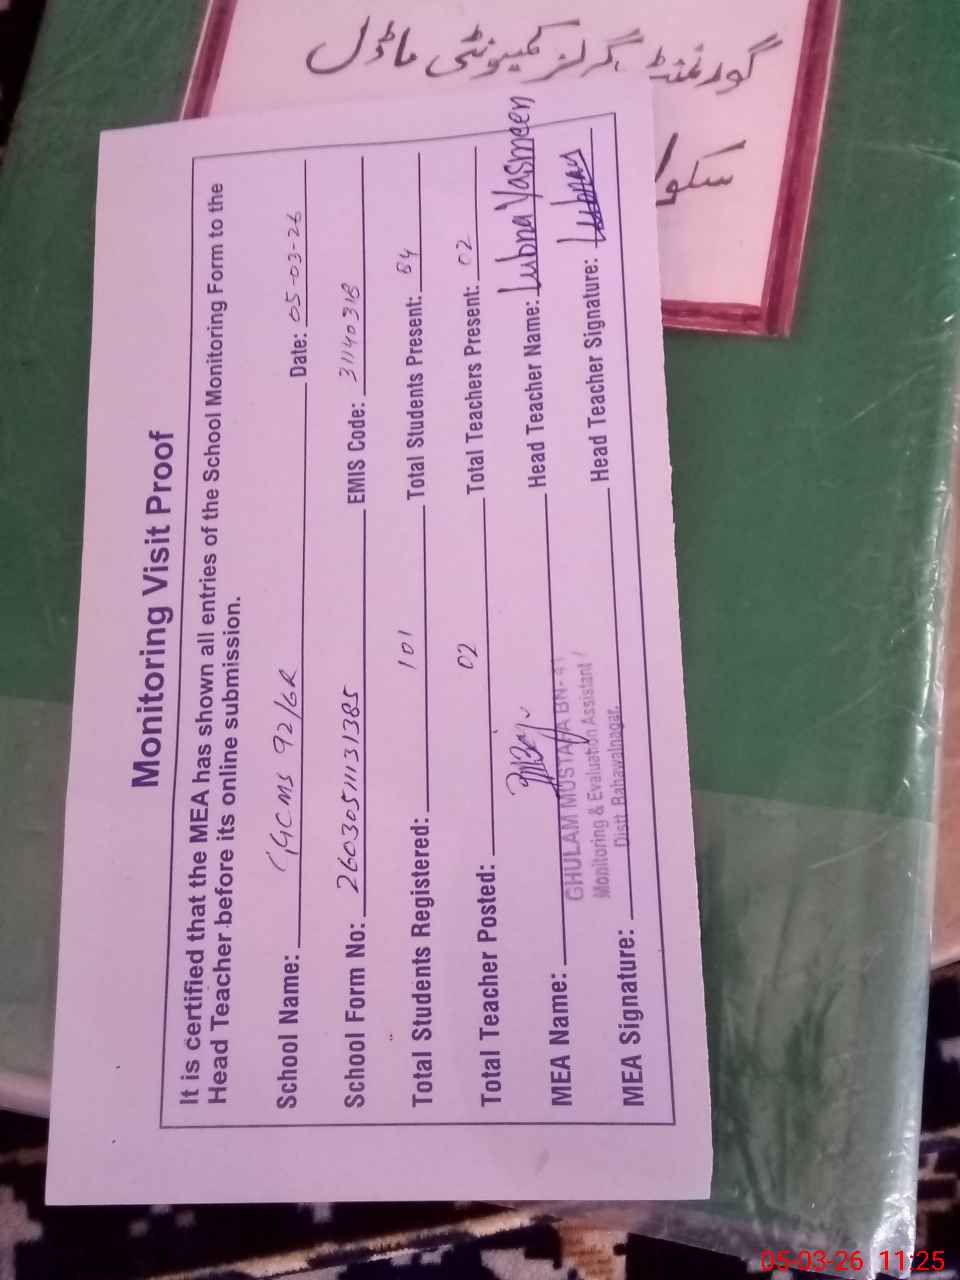 گورنمنٹ گرلز کمیونٹی ماڈل
سکول
Monitoring Visit Proof
It is certified that the MEA has shown all entries of the School Monitoring Form to the
Head Teacher before its online submission.
School Name: GGCMS 92/6R Date: 05-03-26
School Form No: 2603051131385 EMIS Code: 31140318
Total Students Registered: 101 Total Students Present: 84
Total Teacher Posted: 02 Total Teachers Present: 02
MEA Name: Head Teacher Name: Lubna Yasmeen
GHULAM MUSTAFA BN- 41
Monitoring & Evaluation Assistant
Distt. Bahawalnagar.
MEA Signature: Head Teacher Signature: Lubnay
05-03-26 11:25